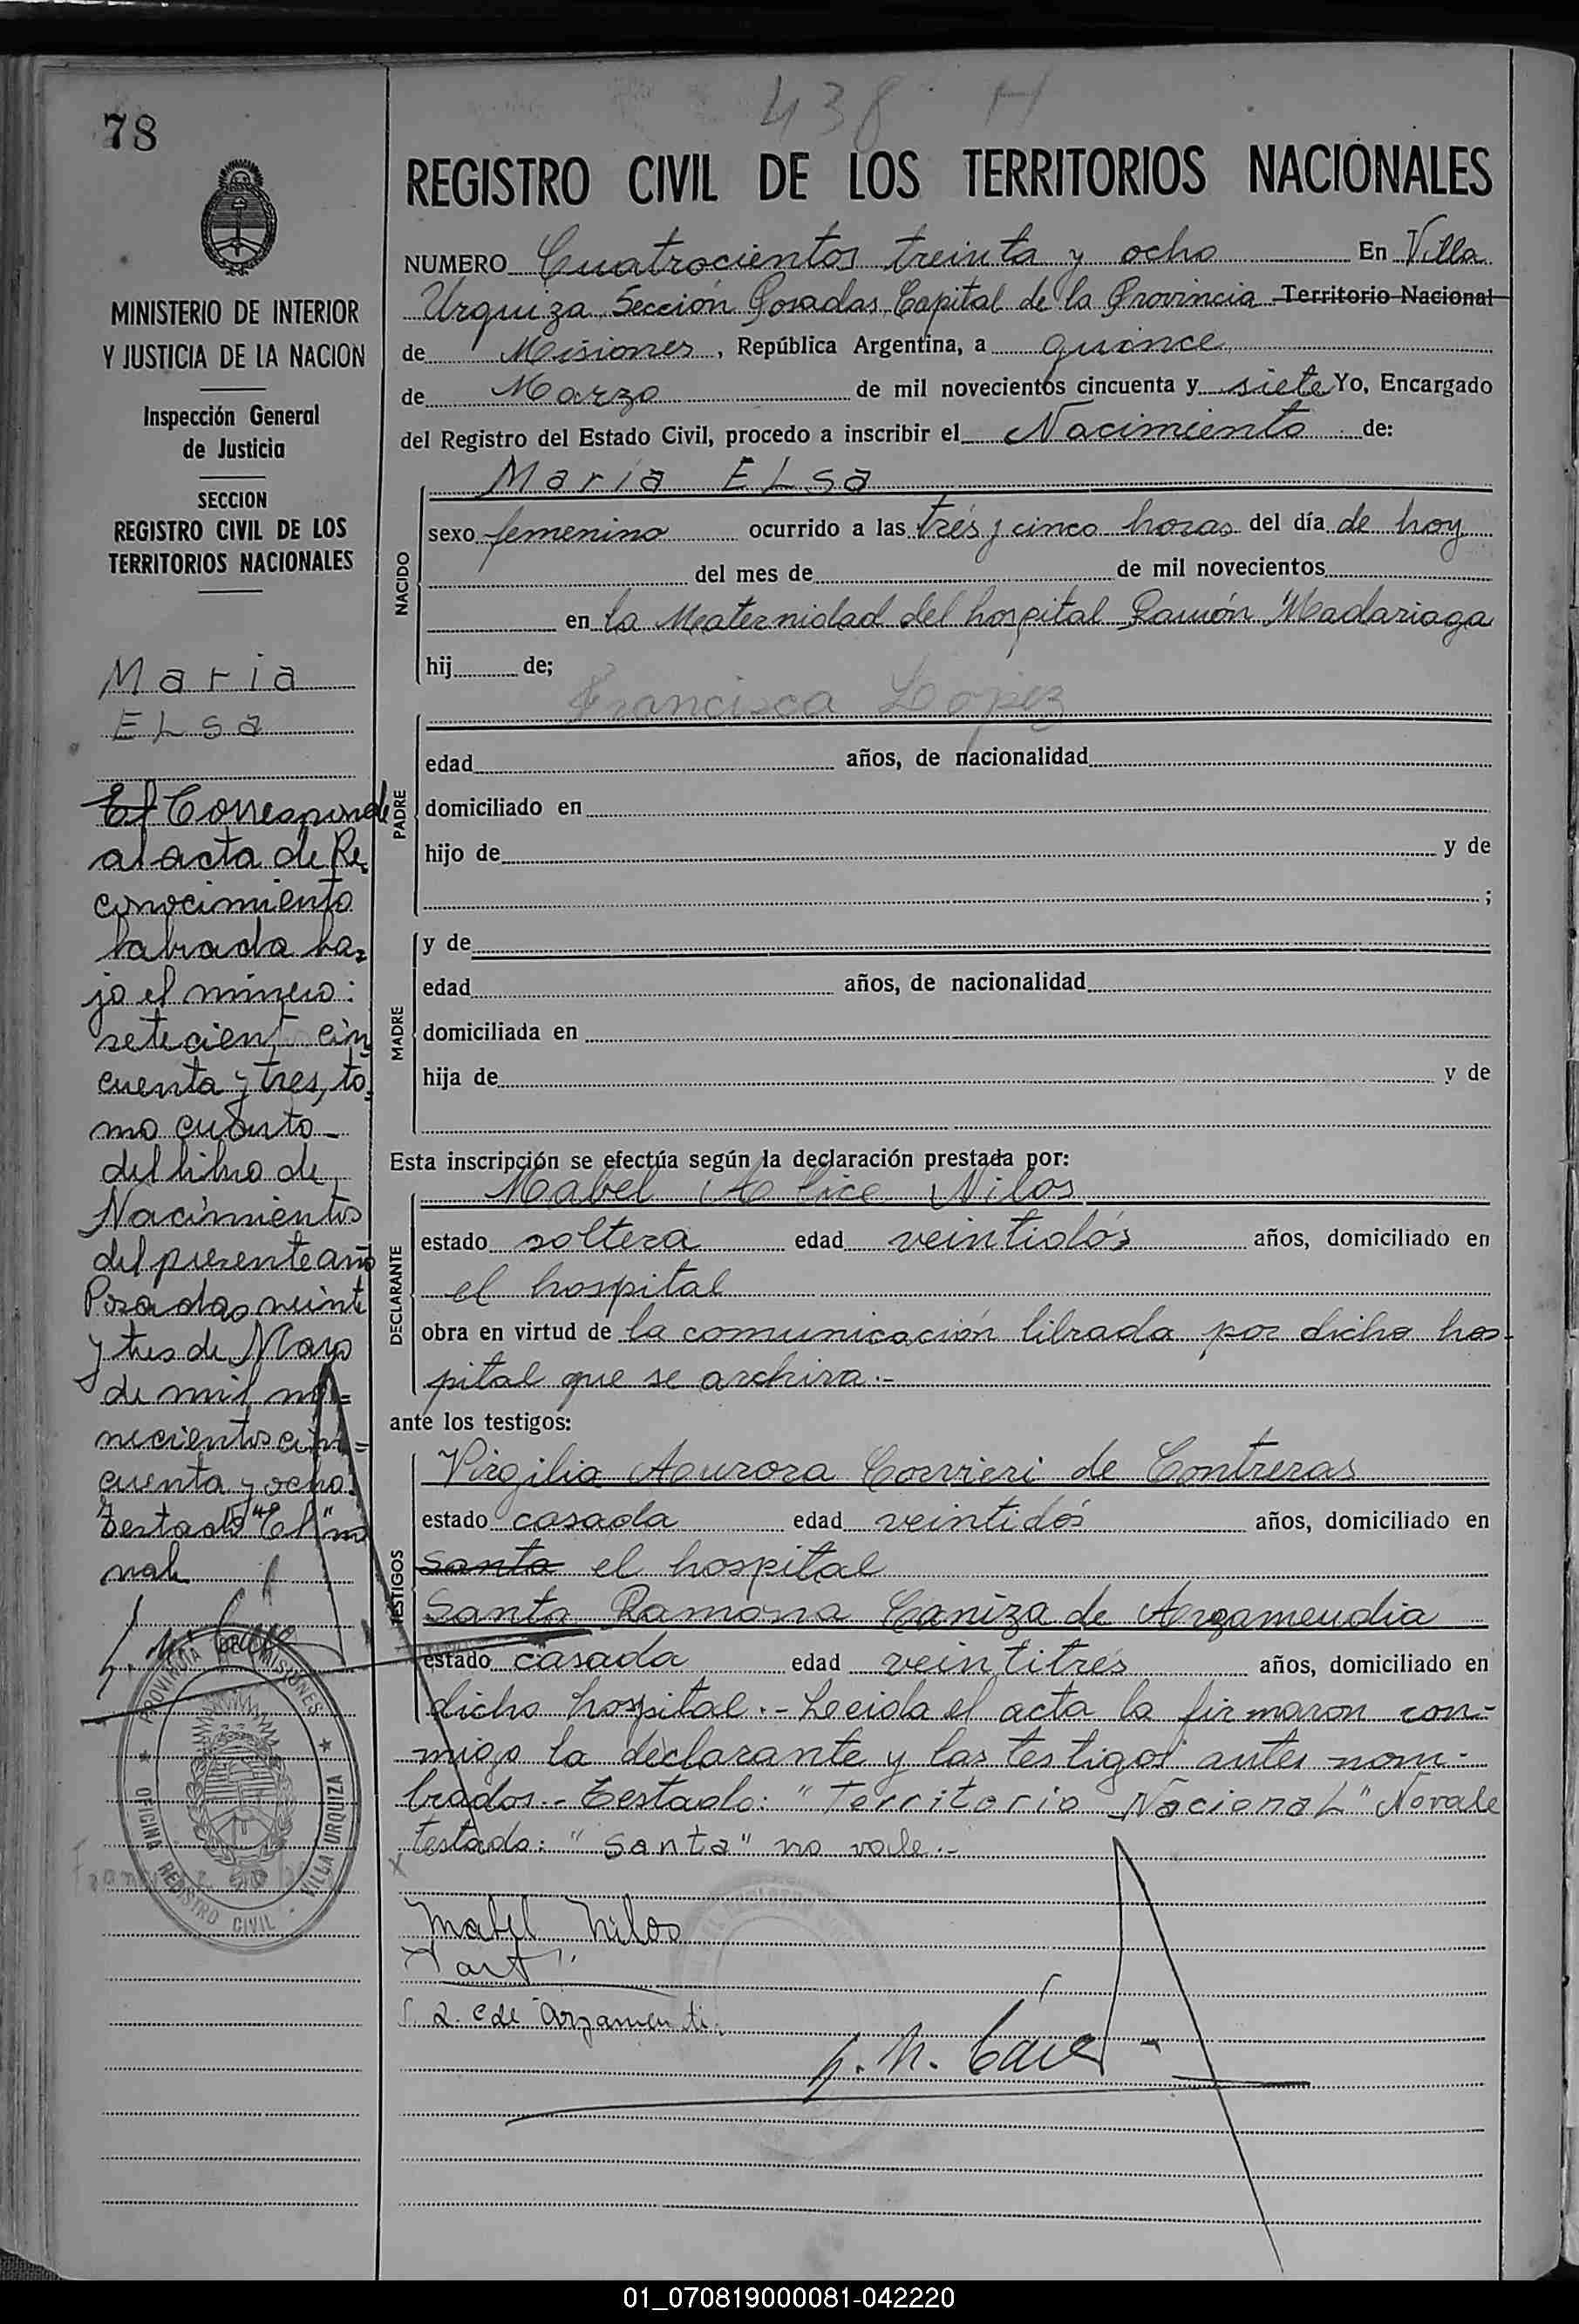 438 H
78
REGISTRO CIVIL DE LOS TERRITORIOS NACIONALES
MINISTERIO DE INTERIOR
Y JUSTICIA DE LA NACION
Inspección General
de Justicia
SECCION
REGISTRO CIVIL DE LOS
TERRITORIOS NACIONALES
Maria
ELsa
El Corresponde
al acta de Re
conocimiento
labrada ba=
jo el número:
setecient cin
cuenta y tres, to=
mo cuarto
del libro de
Nacimientos
del presente año
Posadas veinte
y tres de Mayo
de mil no=
vecientos cin=
cuenta y ocho.
Testado "El" no
vale
PROVINCIA DE MISIONES
OFICINA REGISTRO CIVIL - VILLA URQUIZA
NUMERO Cuatrocientos treinta y ocho En Villa
Urquiza Sección Posadas, Capital de la Provincia Territorio Nacional
de Misiones, República Argentina, a quince
de Marzo de mil novecientos cincuenta y siete Yo, Encargado
del Registro del Estado Civil, procedo a inscribir el Nacimiento de:
NACIDO
María ELsa
sexo femenino ocurrido a las tres y cinco horas del día de hoy
del mes de de mil novecientos
en la Maternidad del hospital Ramón Madariaga
hij de;
PADRE
Francisca Lopez
edad años, de nacionalidad
domiciliado en
hijo de y de
;
MADRE
y de
edad años, de nacionalidad
domiciliada en
hija de y de
Esta inscripción se efectúa según la declaración prestada por:
DECLARANTE
Mabel Alice Nilos
estado soltera edad veintidós años, domiciliado en
el hospital
obra en virtud de la comunicación librada por dicho hos-
pital que se archiva.-
ante los testigos:
TESTIGOS
Virgilia Aurora Corvieri de Contreras
estado casada edad veintidós años, domiciliado en
Santa el hospital
Santa Ramona Caniza de Arzamendia
estado casada edad veintitres años, domiciliado en
dicho hospital.- Leeida el acta la firmaron con-
migo la declarante y las testigos antes nom-
brados.- Testado: "Territorio Nacional" No vale
testado: "Santa" no vale.-
Mabel Nilos
S. R. C de Arzamendi